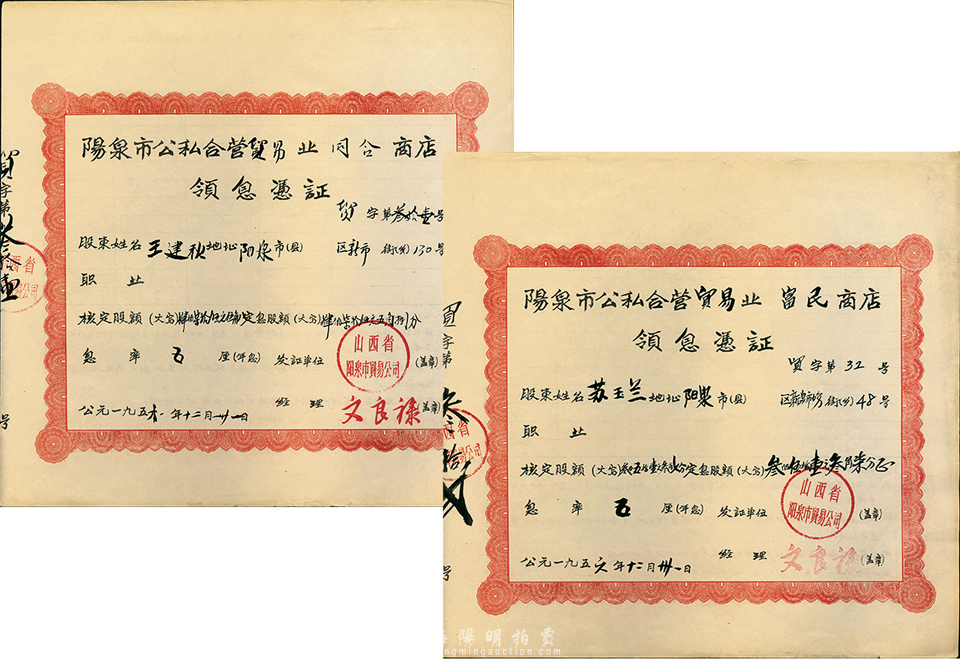 陽泉市公私合营貿易业同合商店
領息憑証
貿字第叁拾壹号
股東姓名王建秋地址阳泉市(县)区新市街(乡)130号
职业
核定股額(大写)定息股額(大写)
息率五厘(年息)发証单位(盖章)
山西省
阳泉市貿易公司
経理文良禄(盖章)
公元一九五六年十二月卅一日
貿字第
号
西省
易公司
陽泉市公私合营貿易业富民商店
領息憑証
貿字第32号
股東姓名苏玉兰地址阳泉市(县)区街(乡)48号
职业
核定股額(大写)定息股額(大写)叁佰伍拾壹元叁角柒分正
息率五厘(年息)发証单位(盖章)
山西省
阳泉市貿易公司
経理文良禄(盖章)
公元一九五六年十二月卅一日
貿字第叁拾贰
号
西省
易公司
陽明拍賣
mingmingauction.com